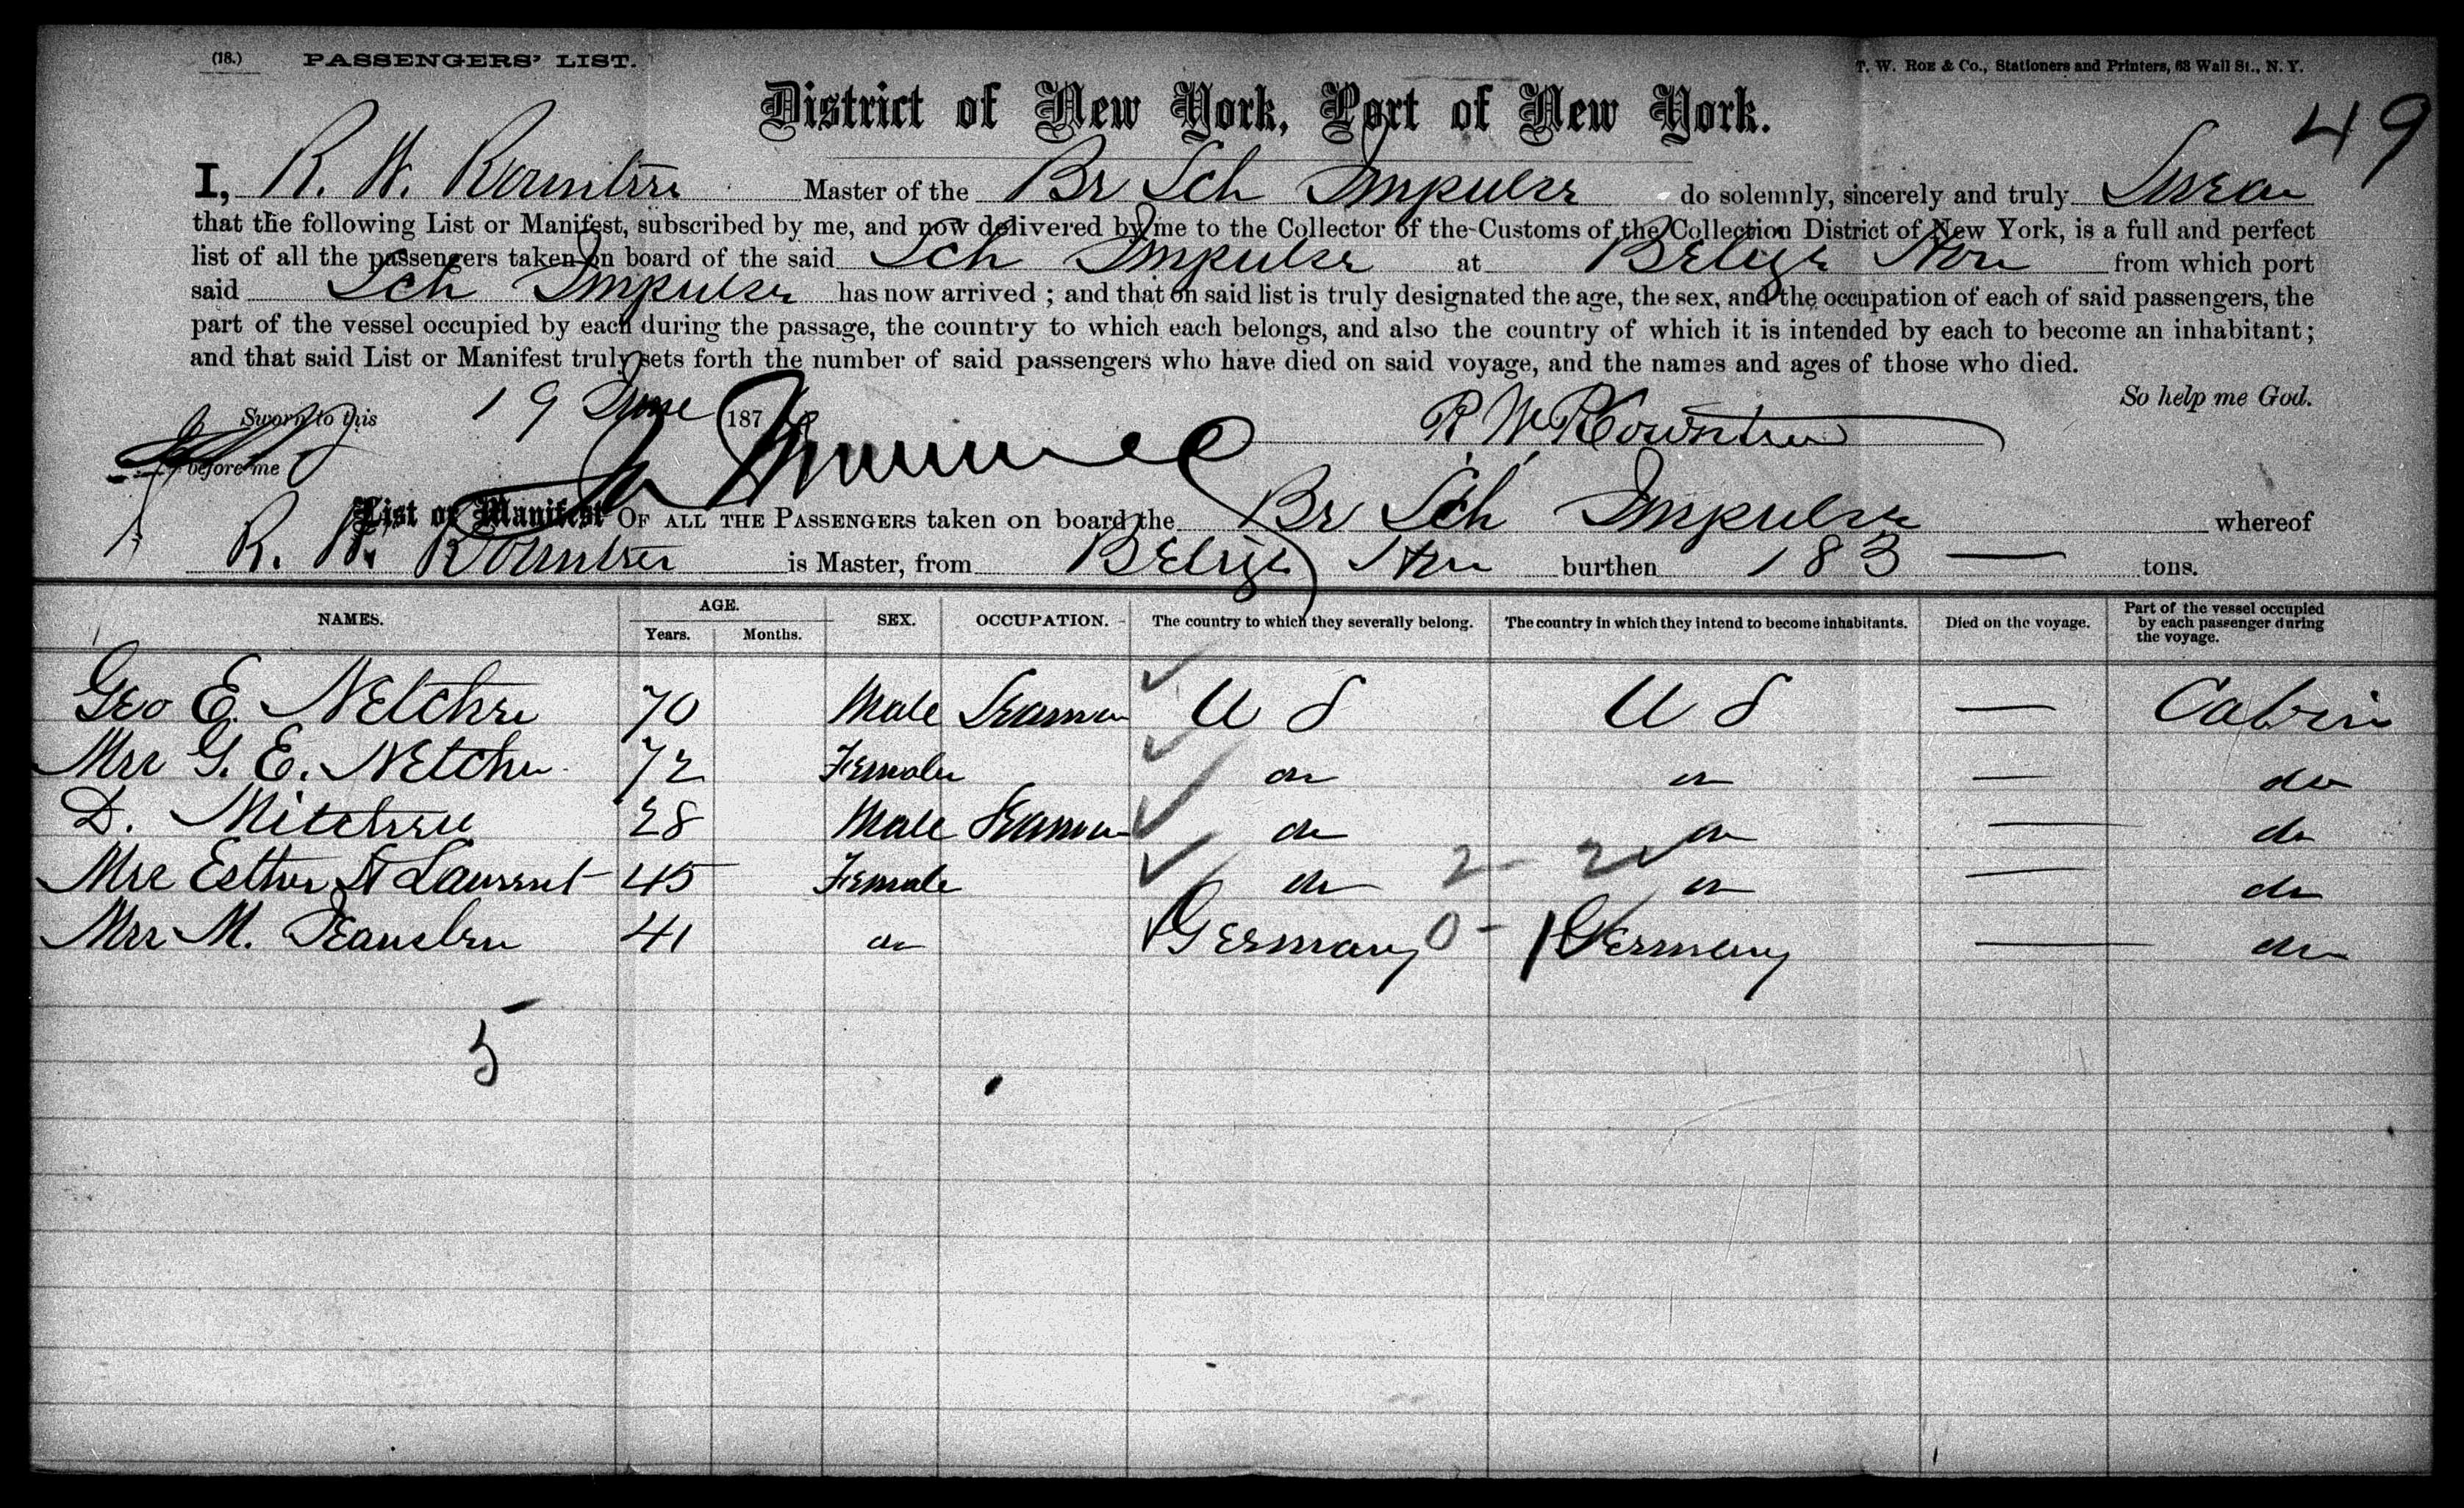 (18.) PASSENGERS' LIST. T. W. ROE & Co., Stationers and Printers, 63 Wall St., N. Y.
District of New York, Port of New York. 49
I, R. W. Rountree Master of the Br Sch Impulse do solemnly, sincerely and truly Swear
that the following List or Manifest, subscribed by me, and now delivered by me to the Collector of the Customs of the Collection District of New York, is a full and perfect
list of all the passengers taken on board of the said Sch Impulse at Belize Hon from which port
said Sch Impulse has now arrived ; and that on said list is truly designated the age, the sex, and the occupation of each of said passengers, the
part of the vessel occupied by each during the passage, the country to which each belongs, and also the country of which it is intended by each to become an inhabitant ;
and that said List or Manifest truly sets forth the number of said passengers who have died on said voyage, and the names and ages of those who died.
So help me God.
Sworn to this 19 June 187 R W Rountree
before me
List or Manifest OF ALL THE PASSENGERS taken on board the Br Sch Impulse whereof
R. W. Rountree is Master, from Belize Hon burthen 183 — tons.
NAMES. AGE. Years. Months. SEX. OCCUPATION. The country to which they severally belong. The country in which they intend to become inhabitants. Died on the voyage. Part of the vessel occupied by each passenger during the voyage.
Geo E. 70 Male Seaman U S U S — Cabin
Mrs G. E. 72 Female do do — do
D. Mitchell 28 Male Seaman do do — do
Mrs Esther St Laurent 45 Female do 2 - 2 do — do
Mrs M. 41 do Germany 0 - 1 Germany — do
5